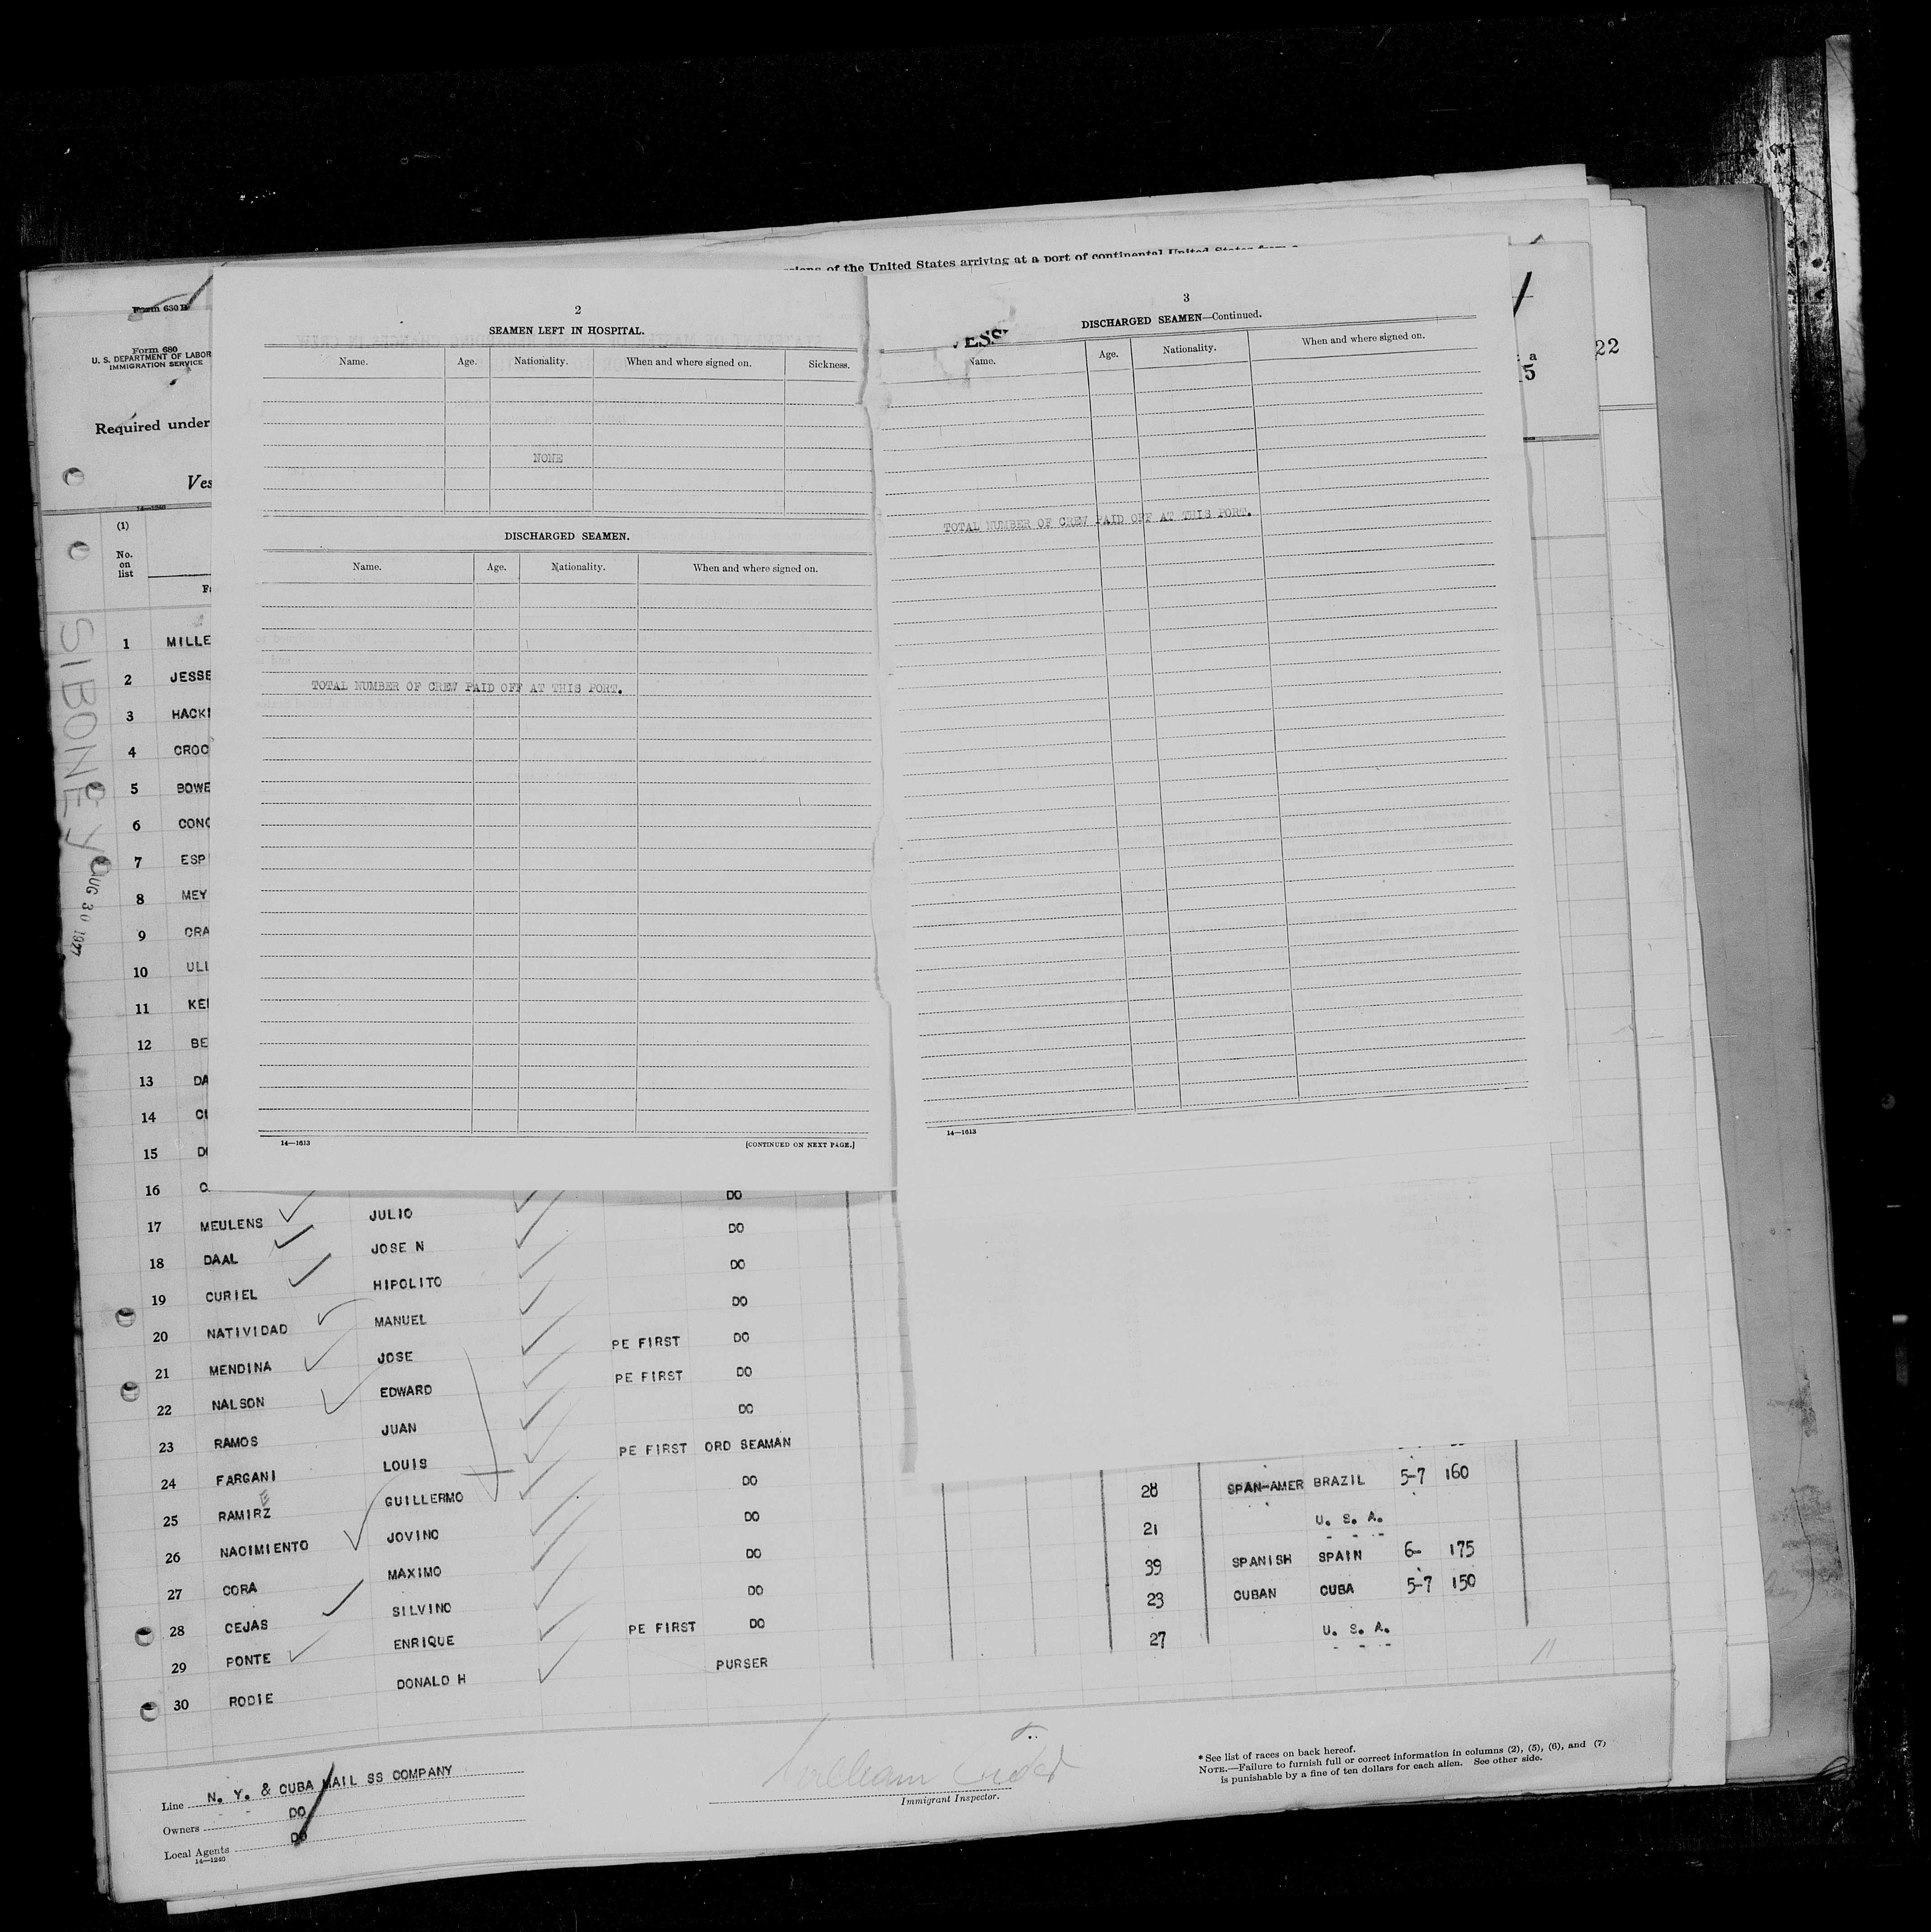 sions of the United States arriving at a port of continental United States from a
Form 630 B
Form 680
U. S. DEPARTMENT OF LABOR
IMMIGRATION SERVICE
Required under
Ves
14—1240
(1)
No.
on
list
SIBONEY
AUG 30 1927
2
SEAMEN LEFT IN HOSPITAL.
Name. Age. Nationality. When and where signed on. Sickness.
NONE
DISCHARGED SEAMEN.
Name. Age. Nationality. When and where signed on.
TOTAL NUMBER OF CREW PAID OFF AT THIS PORT.
14—1613
[CONTINUED ON NEXT PAGE.]
3
DISCHARGED SEAMEN—Continued.
VESS
Name. Age. Nationality. When and where signed on.
TOTAL NUMBER OF CREW PAID OFF AT THIS PORT.
14—1613
a
5
22
1 MILLE
2 JESSE
3 HACK
4 CROC
5 BOWE
6 CONC
7 ESP
8 MEY
9 CRA
10 ULL
11 KE
12 BE
13 DA
14 CU
15 D
16 C DO
17 MEULENS JULIO DO
18 DAAL JOSE N DO
19 CURIEL HIPOLITO DO
20 NATIVIDAD MANUEL PE FIRST DO
21 MENDINA JOSE PE FIRST DO
22 NALSON EDWARD DO
23 RAMOS JUAN PE FIRST ORD SEAMAN
24 FARGANI LOUIS DO
25 RAMIRZ GUILLERMO DO
26 NACIMIENTO JOVINO DO 28 SPAN-AMER BRAZIL 5-7 160
27 CORA MAXIMO DO 21 U. S. A.
28 CEJAS SILVINO PE FIRST DO 39 SPANISH SPAIN 6- 175
29 PONTE ENRIQUE 23 CUBAN CUBA 5-7 150
30 RODIE DONALD H PURSER 27 U. S. A.
11
Line N. Y. & CUBA MAIL SS COMPANY
Owners DO
Local Agents DO
14—1240
William
Immigrant Inspector.
* See list of races on back hereof.
NOTE.—Failure to furnish full or correct information in columns (2), (5), (6), and (7)
is punishable by a fine of ten dollars for each alien. See other side.